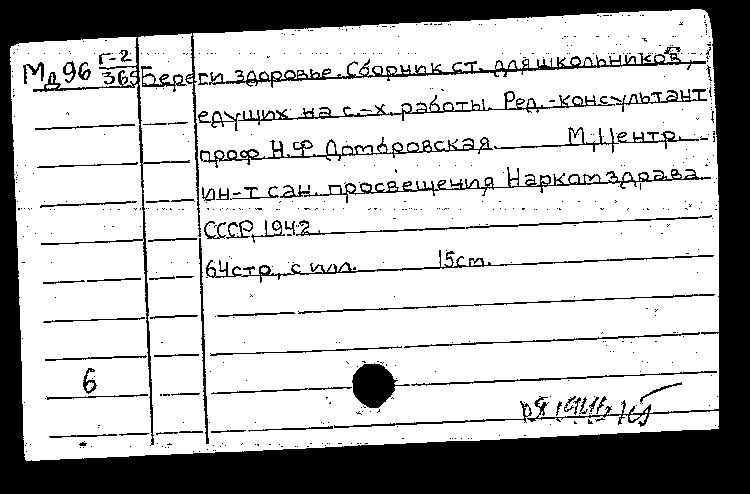 Мд96 Г-2/365 Береги здоровье. Сборник ст. для школьников,
едущих на с.-х. работы. Ред.-консультант
проф. Н.Ф. Домбровская. М., Центр.
ин-т сан. просвещения Наркомздрава
СССР, 1942.
64стр., с илл. 15см.
6